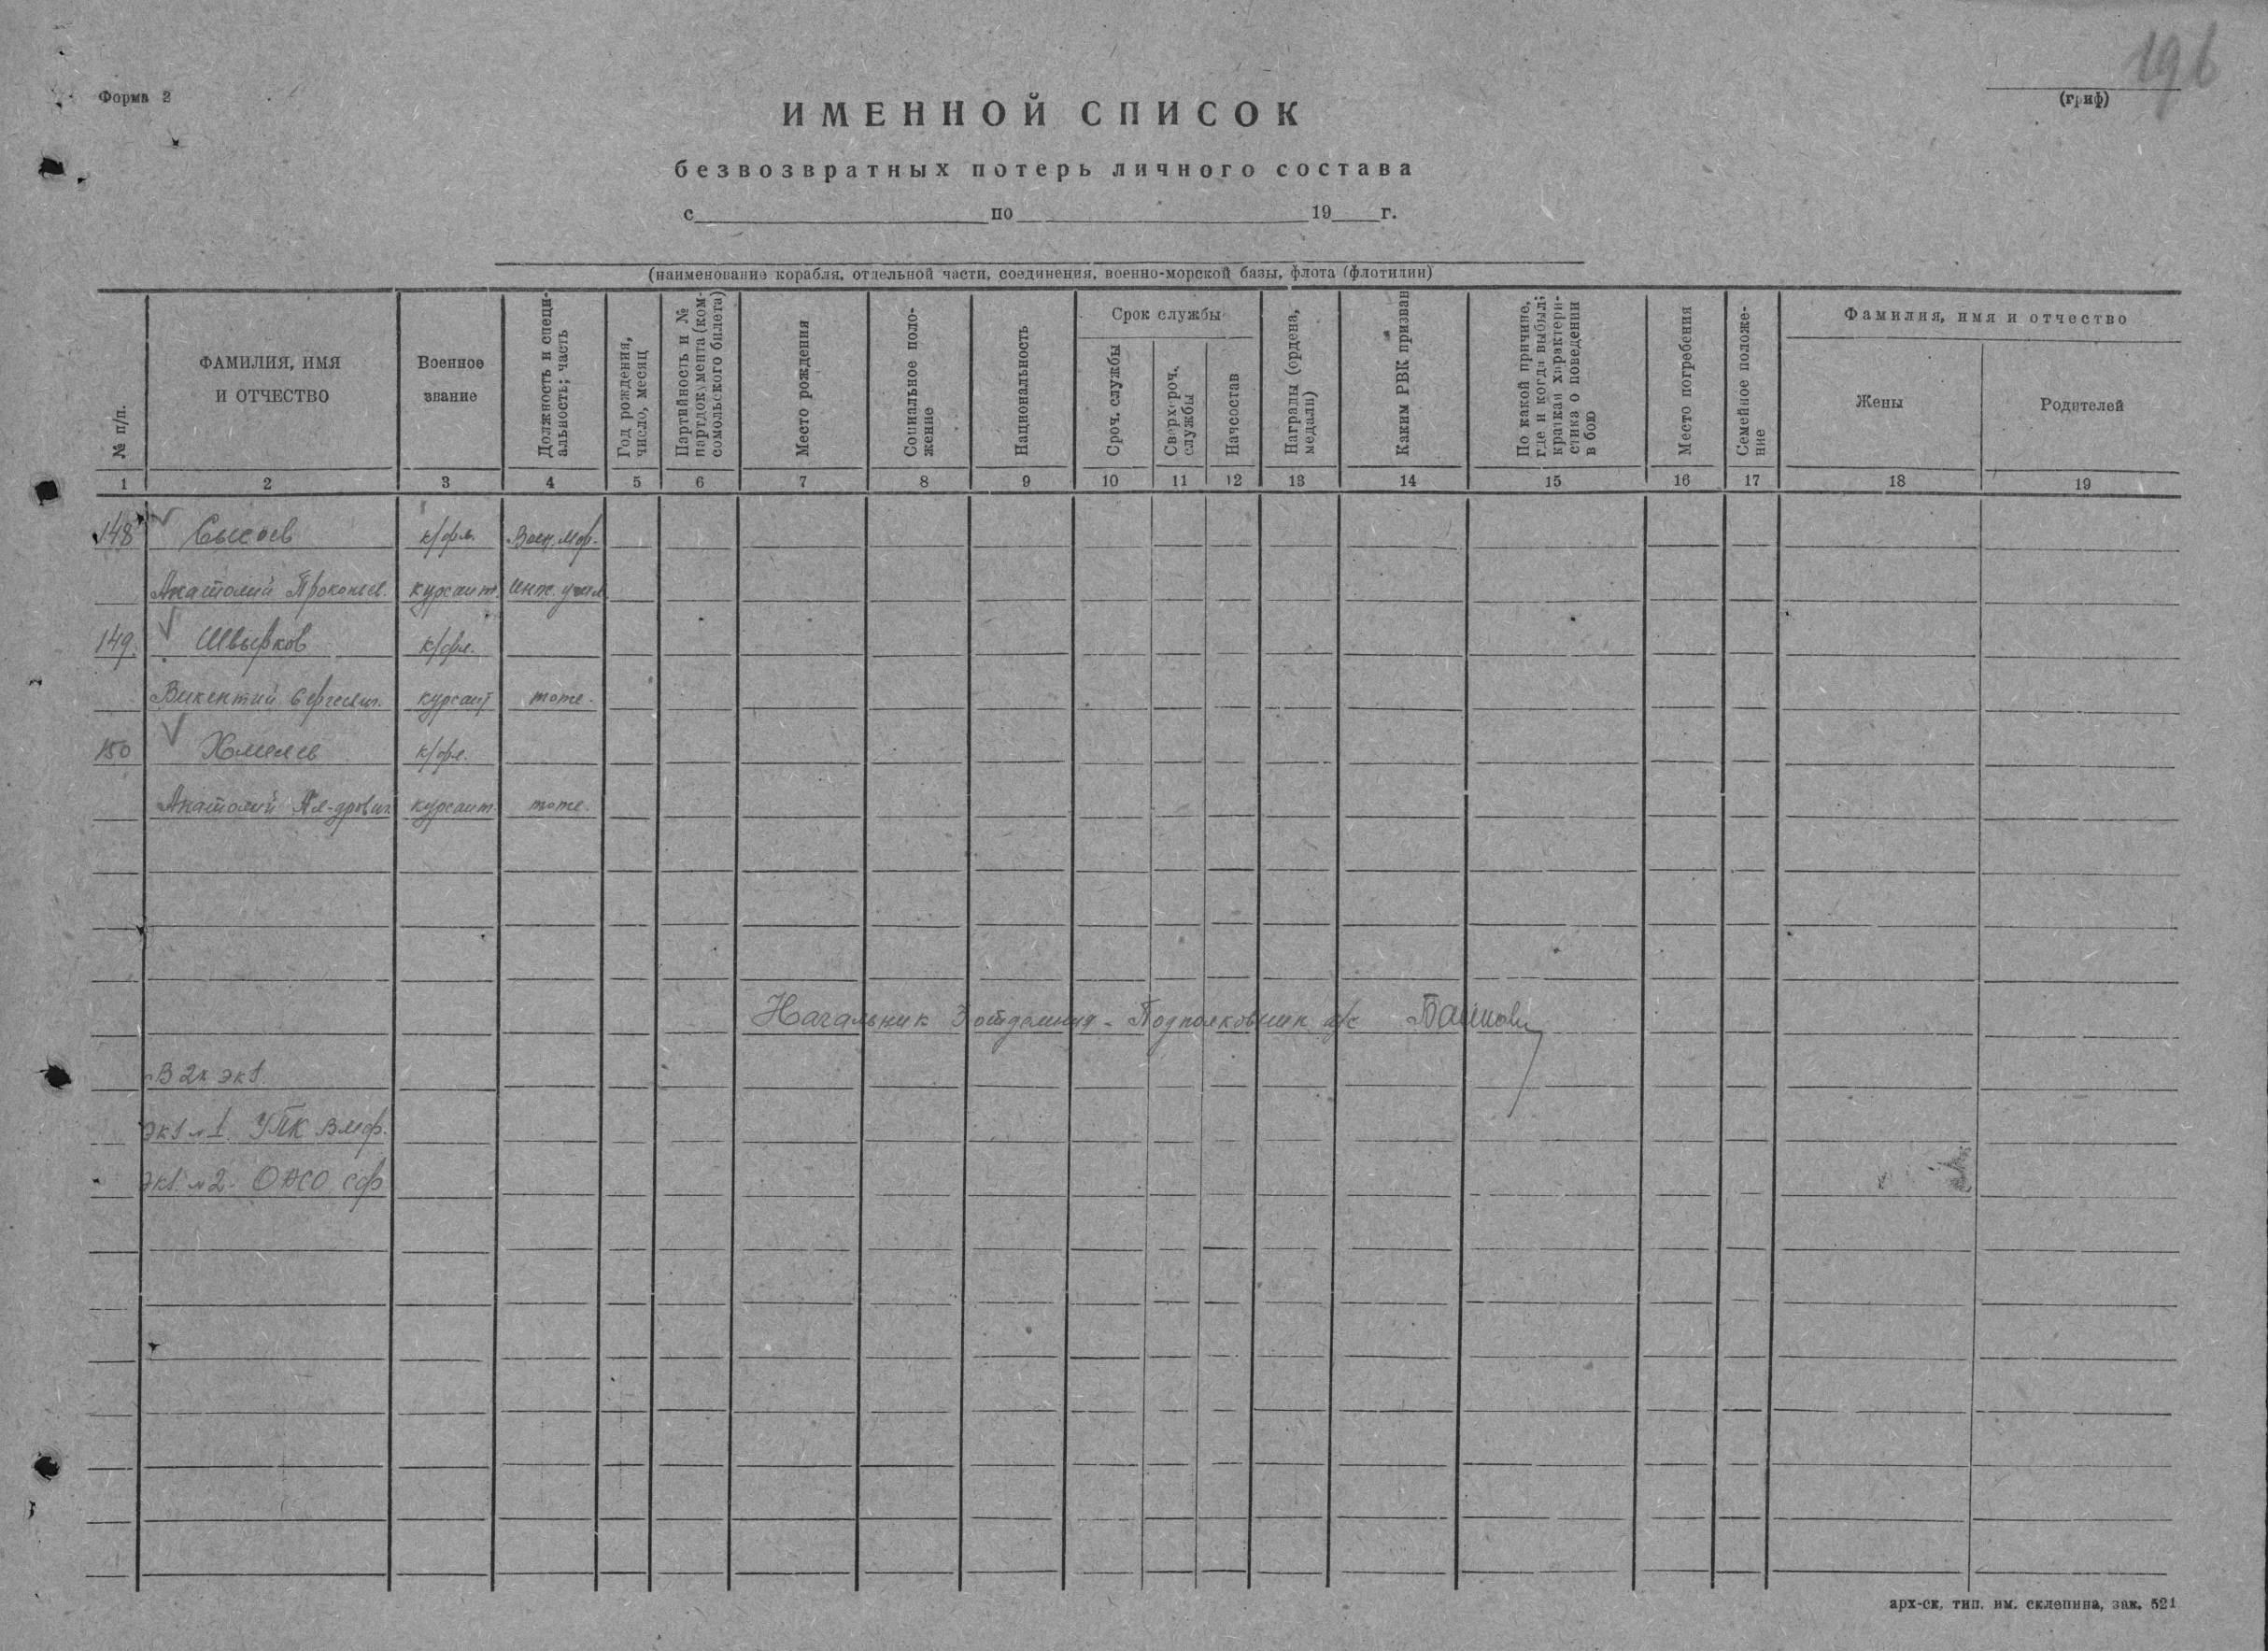 196
Форма 2
(гриф)
ИМЕННОЙ СПИСОК
безвозвратных потерь личного состава
с по 19 г.
(наименование корабля, отдельной части, соединения, военно-морской базы, флота (флотилии)
№ п/п.
ФАМИЛИЯ, ИМЯ
И ОТЧЕСТВО
Военное
звание
Должность и специ-
альность; часть
Год рождения,
число, месяц
Партийность и №
партдокумента (ком-
сомольского билета)
Место рождения
Социальное поло-
жение
Национальность
Срок службы
Сроч. службы
Сверхсроч.
службы
Начсостав
Награды (ордена,
медали)
Каким РВК призван
По какой причине,
где и когда выбыл;
краткая характери-
стика о поведении
в бою
Место погребения
Семейное положе-
ние
Фамилия, имя и отчество
Жены
Родителей
1 2 3 4 5 6 7 8 9 10 11 12 13 14 15 16 17 18 19
148 Сысоев к/фл. Воен. Мор.
Анатолий Прокопьев. курсант. инж. учил
149. Швырков к/фл.
Викентий Сергеевич. курсант тоже.
150 Хмелев к/фл.
Анатолий Ал-дрович курсант. тоже.
Начальник 3 отделения - Подполковник а/с
В 2х экз.
экз №1. УПК ВМФ.
экз. №2. СФ
арх-ск, тип. им. склепина, зак. 521